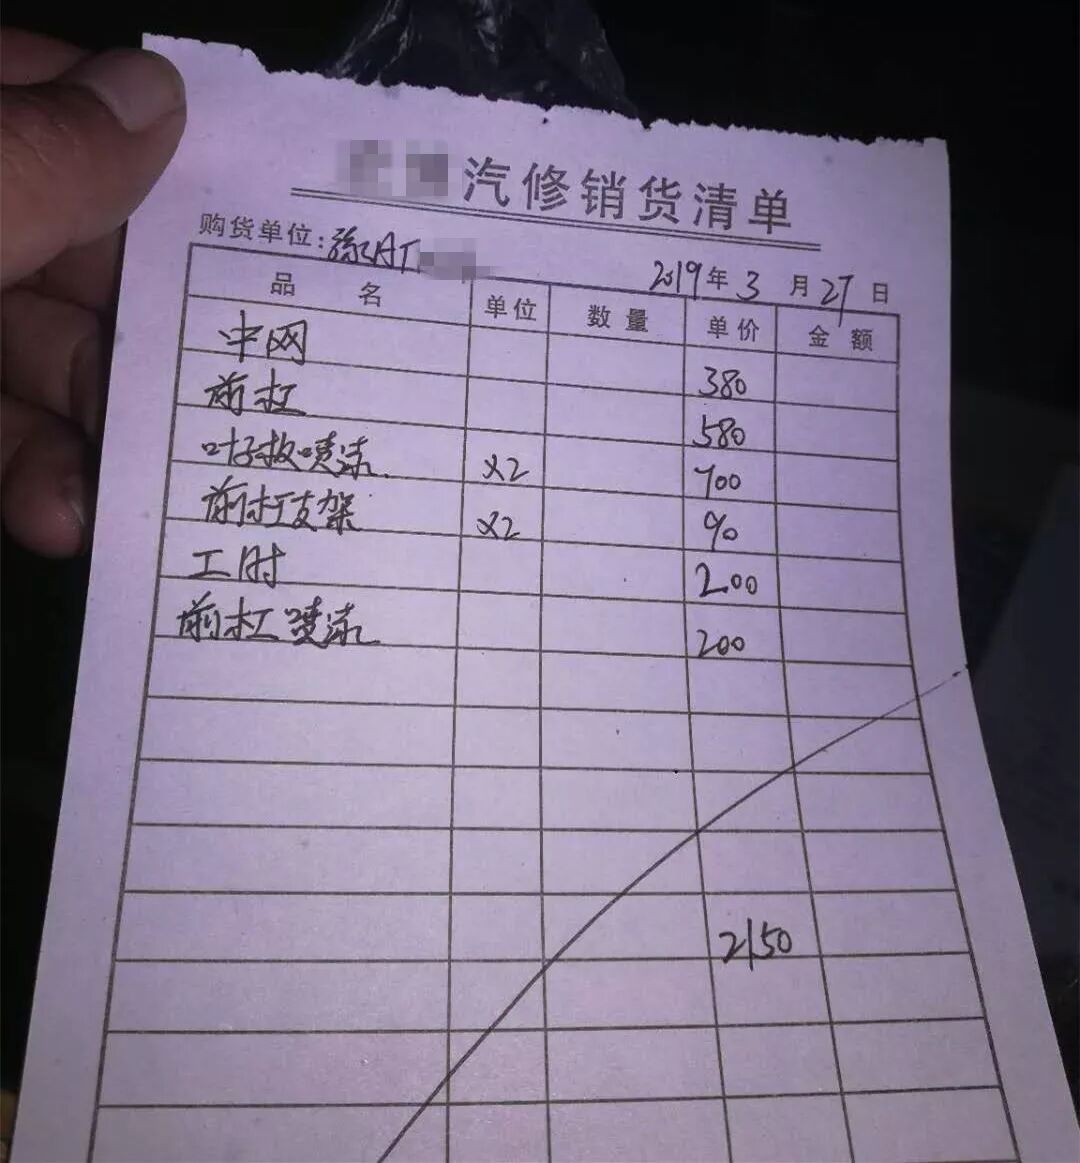 汽修销货清单
购货单位:
2019年3月27日
品名 单位 数量 单价 金额
中网 380
前杠 580
叶子板喷漆 X2 700
前杠支架 X2 90
工时 200
前杠喷漆 200
2150